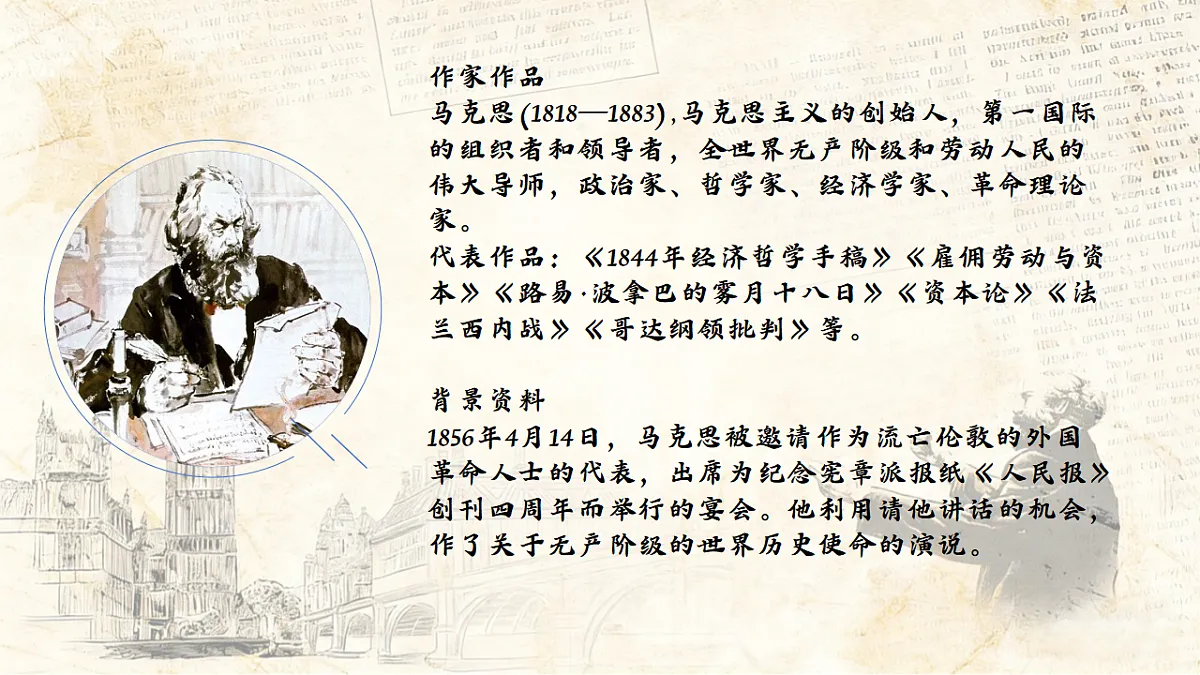 作家作品
马克思(1818—1883),马克思主义的创始人，第一国际
的组织者和领导者，全世界无产阶级和劳动人民的
伟大导师，政治家、哲学家、经济学家、革命理论
家。
代表作品：《1844年经济哲学手稿》《雇佣劳动与资
本》《路易·波拿巴的雾月十八日》《资本论》《法
兰西内战》《哥达纲领批判》等。
背景资料
1856年4月14日，马克思被邀请作为流亡伦敦的外国
革命人士的代表，出席为纪念宪章派报纸《人民报》
创刊四周年而举行的宴会。他利用请他讲话的机会，
作了关于无产阶级的世界历史使命的演说。